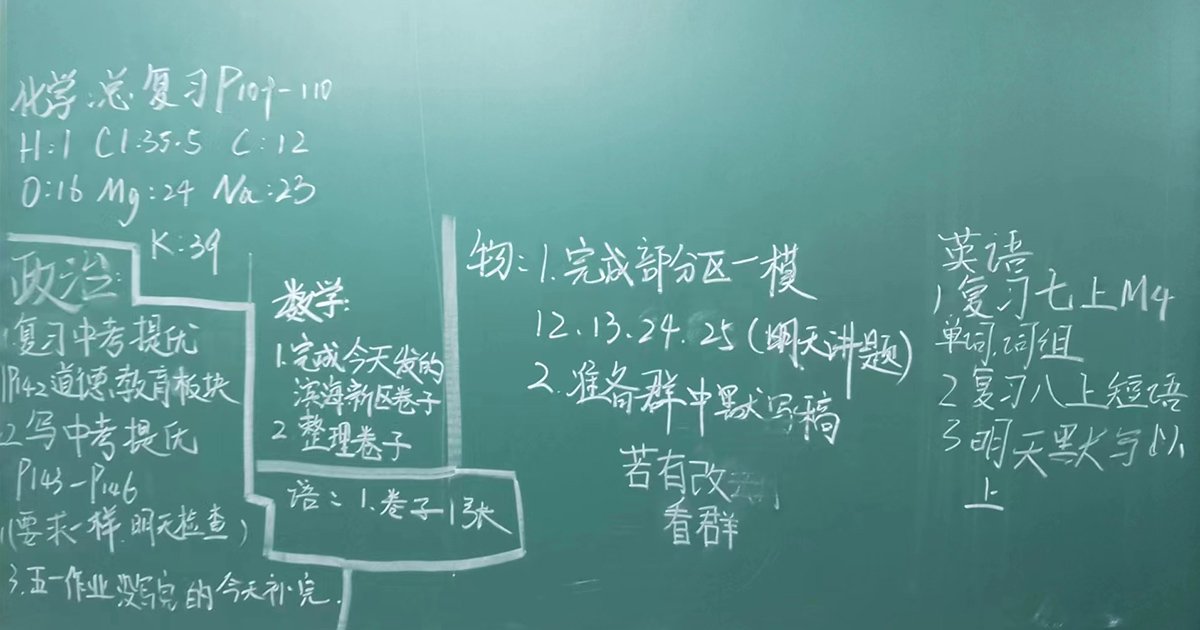 化学:总复习P109-110
H:1 Cl:35.5 C:12
O:16 Mg:24 Na:23
K:39
政治:
1.复习中考提优
P142道德.教育板块
2.写中考提优
P143-P146
(要求一样.明天检查)
3.五一作业没写完的今天补完.
数学:
1.完成今天发的
滨海新区卷子
2.整理卷子
语:1.卷子1张
物:1.完成部分区一模
12.13.24.25(明天讲题)
2.准备群中默写稿
若有改
看群
英语
1复习七上M4
单词.词组
2复习八上短语
3明天默写以
上